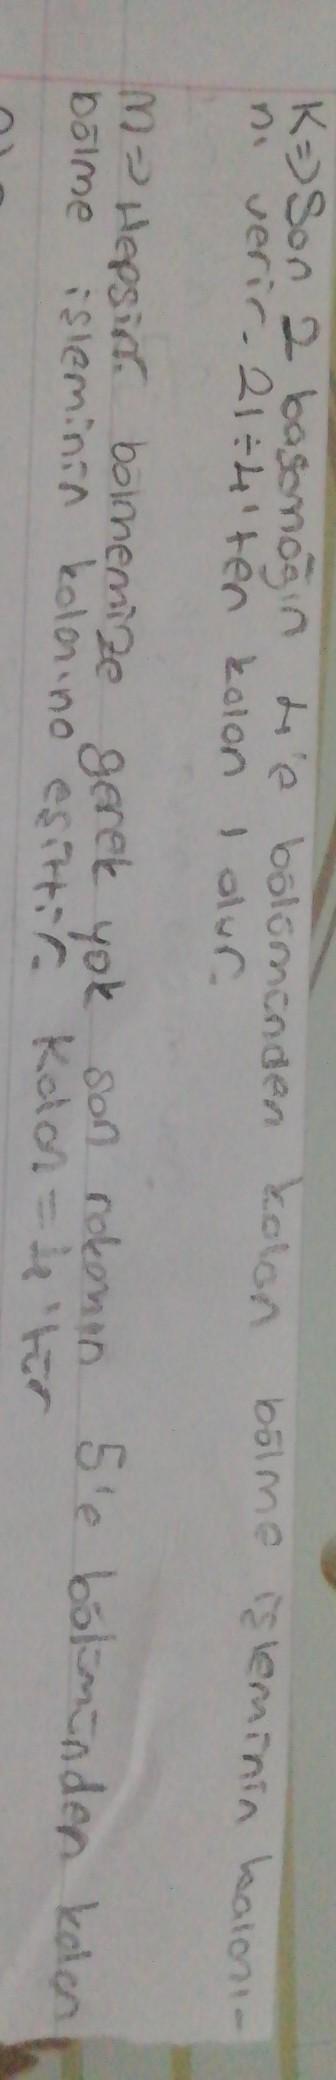 K => Son 2 basamağın 4'e bölümünden kalan bölme işleminin kalanı-
nı verir. 21÷4'ten kalan 1 olur.
M => Hepsini bölmemize gerek yok son rakamın 5'e bölümünden kalan
bölme işleminin kalanına eşittir. Kalan = 4'tür